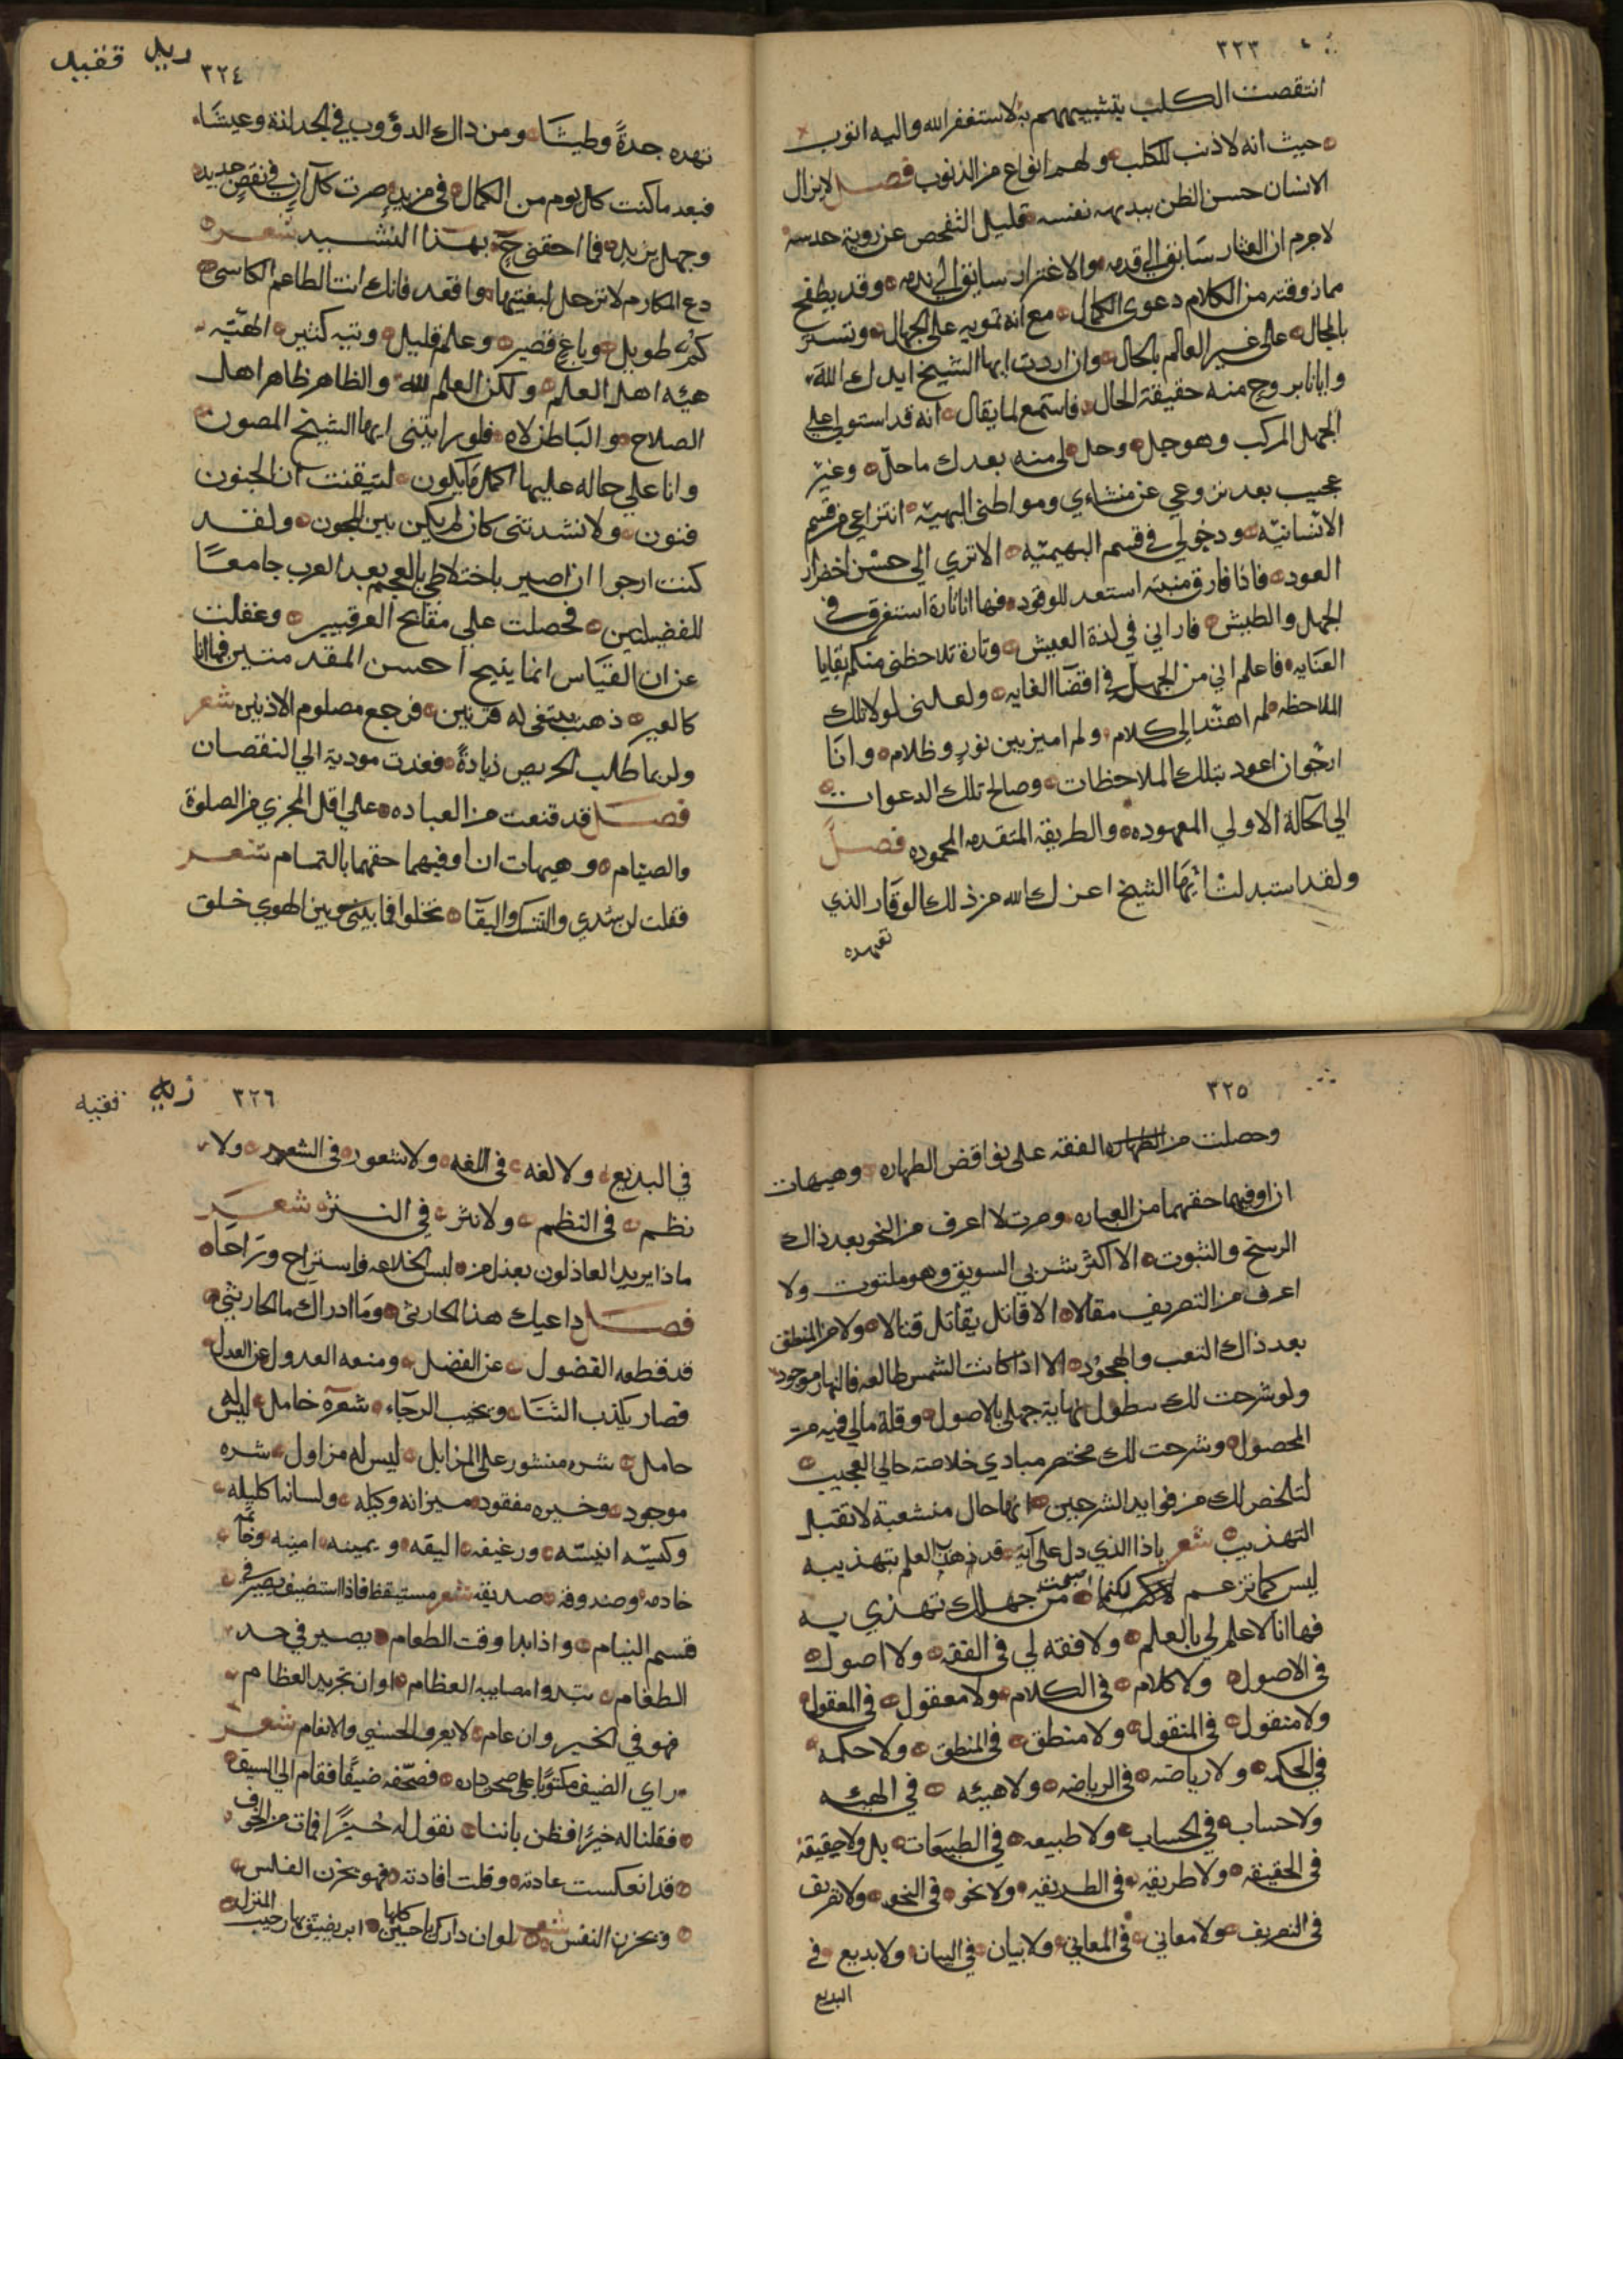 ٣٢٣
انتقصت الكلب بتشبيههم به لاستغفر الله واليه اتوب
حيث انه لاذنب للكلب ولهم انواع من الذنوب فصل لايزال
الانسان حسن الظن ببديهه نفسه قليل التفحص عن روية حدسه
لاجرم ان العثار سابق الي قدمه والاغترار سابق الي ندمه وقد يطفح
مماذوقته من الكلام دعوي الكمال مع انه تمويه علي الجهال وتستر
بالمحال علي غير العالم بالحال وان اردت ايها الشيخ ايدك الله
وايانا بروح منه حقيقة الحال فاستمع لما يقال انه قد استولي علي
الجهل المركب وهو جل وحل لي منه بعدك ماحل وغير
عجيب بعد نزوحي عن منشاءي ومواطني البهيه انتزاعي من قسم
الانسانيه ودخولي في قسم البهيميه الاتري الي حسن اخضرار
العود فاذا فارق منبته استعد للوقود فها انا تارة استغرق في
الجهل والطيش فاراني في لذة العيش وتارة تلاحظني منكم بقايا
العنايه فاعلم اني من الجهل في اقصا الغايه ولعلني لولا تلك
الملاحظه لم اهتد الي كلام ولم اميز بين نور وظلام وانا
ارجو ان اعود بتلك الملاحظات وصالح تلك الدعوات
الي الحالة الاولي المعهوده والطريقه المتقدمه المحموده فصل
ولقد استبدلت ايها الشيخ اعزك الله من ذلك الوقار الذي
تعهده
٣٢٤
زيد فقيه
تعهده جدة وطيشا ومن ذاك الدؤوب في الجد لذة وعيشا
فبعد ما كنت كل يوم من الكمال في مزيد صرت كل آن في نقص جديد
وجهل يزيد فما احقني بهذا النشيد شعر
دع المكارم لاترحل لبغيتها واقعد فانك انت الطاعم الكاسي
كم طويل وباع قصير وعلم قليل وتيه كثير الهيئه
هيئه اهل العلم ولكن العلم لله والظاهر ظاهر اهل
الصلاح والباطن لاه فلو رايتني ايها الشيخ المصون
وانا علي حاله عليها اكمل مايكون لتيقنت ان الجنون
فنون ولانشدتني كان لم يكن بين الحجون ولقد
كنت ارجوا ان اصير باختلاطي بالعجم بعد العرب جامعا
للفضيلتين فحصلت علي مقابح الفرقتين وغفلت
عن ان القياس انما ينتج احسن المقدمتين فها انا
كالعير ذهب يبتغي له قرنين فرجع مصلوم الاذنين شعر
ولربما طلب الحريص زيادة فغدت مودية الي النقصان
فصل قد قنعت من العباده علي اقل المجزي من الصلوة
والصيام وهيهات ان اوفيهما حقهما بالتمام شعر
فقلت لرشدي والتنسك والتقا تخلوا فما بيني وبين الهوي خلق
٣٢٥
وحصلت من الطهاره الفقه علي نواقض الطهاره وهيهات
ان اوفيها حقهما من العباره وصرت لا اعرف من النحو بعد ذاك
الرسخ والثبوت الا اكثر شربي السويق وهو ملتوت ولا
اعرف من التصريف مقالا الا قاتل يقاتل قتالا ولا من المنطق
بعد ذاك التعب والجهود الا اذا كانت الشمس طالعه فالنهار موجود
ولو شرحت لك مطول نهاية جهلي بالاصول وقلة مالي فيه من
المحصول وشرحت لك مختصر مبادي خلاصة حالي العجيب
لتلخص لك من فوايد الشرحين انها حال منشعبة لاتقبل
التهذيب شعر ياذا الذي دل علي آية قد ذهب العلم بتهذيبه
ليس كما تزعم لكنما اصبحت من جهلك تهذي به
فها انا لا علم لي بالعلم ولا فقه لي في الفقه ولا اصول
في الاصول ولا كلام في الكلام ولا معقول في المعقول
ولا منقول في المنقول ولا منطق في المنطق ولا حكمه
في الحكمه ولا رياضه في الرياضه ولا هيئه في الهيئه
ولا حساب في الحساب ولا طبيعه في الطبيعات بل ولا حقيقة
في الحقيقه ولا طريقه في الطريقه ولا نحو في النحو ولا تصريف
في التصريف ولا معاني في المعاني ولا بيان في البيان ولا بديع في
البديع
٣٢٦
زيد فقيه
في البديع ولا لغه في اللغه ولا شعور في الشعر ولا
نظم في النظم ولا نثر في النثر شعر
ماذا يريد العاذلون بعذل من لبس الخلاعه فاستراح وراحا
فصل داعيك هذا الحارثي وما ادراك ما الحارثي
قد قطعه الفضول عن الفضل ومنعه العدول عن العدل
فصار يكذب الثنا ويخيب الرجاء شعره خامل ليس
حامل شره منشور علي المزابل ليس له من اول شره
موجود وخيره مفقود ميزانه وكيله ولسانها كليله
وكيسه انيسه ورغيفه اليفه ويمينه امينه وخاتمه
خادمه وصندوقه صديقه شعر مستيقظ فاذا استضيف يصير في
قسم النيام واذا بدا وقت الطعام يصير في حد
الطغام تبدوا مصايبه العظام اوان تجريد العظام
فهو في الخير وان عام لا يعرف الحسني والانعام شعر
راي الضيف مكتوبا علي صحن داره فصحفه ضيفا فقام الي السيف
فقلنا له خيرا فظن باننا نقول له خبزا فمات من الخوف
قد انعكست عادته وقلت افادته فهو يخزن الفلس
ويحزن النفس شعر لو ان دارك ياحسين كلها ابر يضيق بها رحيب المنزل